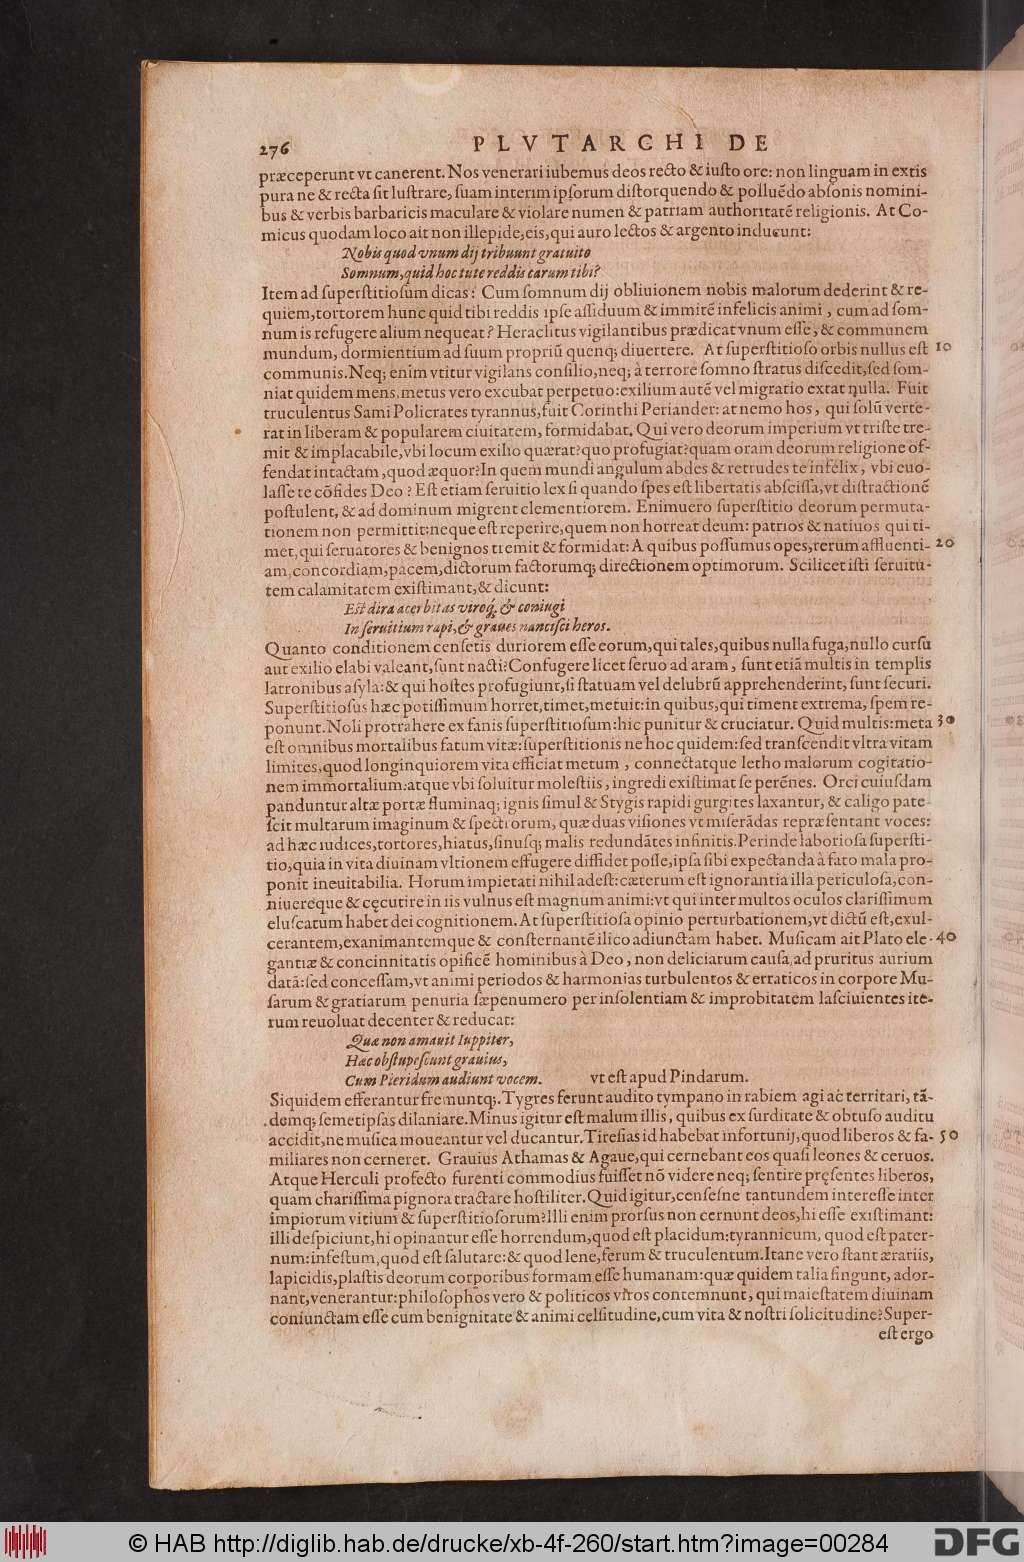 276 PLVTARCHI DE
præceperunt vt canerent. Nos venerari iubemus deos recto & iusto ore: non linguam in extis
pura ne & recta sit lustrare, suam interim ipsorum distorquendo & polluēdo absonis nomini-
bus & verbis barbaricis maculare & violare numen & patriam authoritatē religionis. At Co-
micus quodam loco ait non illepide, eis, qui auro lectos & argento inducunt:
Nobis quod vnum dij tribuunt gratuito
Somnum, quid hoc tute reddis carum tibi?
Item ad superstitiosum dicas: Cum somnum dij obliuionem nobis malorum dederint & re-
quiem, tortorem hunc quid tibi reddis ipse assiduum & immitē infelicis animi, cum ad som-
num is refugere alium nequeat? Heraclitus vigilantibus prædicat vnum esse, & communem
mundum, dormientium ad suum propriū quenq; diuertere. At superstitioso orbis nullus est 10
communis. Neq; enim vtitur vigilans consilio, neq; à terrore somno stratus discedit, sed som-
niat quidem mens, metus vero excubat perpetuo: exilium autē vel migratio extat nulla. Fuit
truculentus Sami Policrates tyrannus, fuit Corinthi Periander: at nemo hos, qui solū verte-
rat in liberam & popularem ciuitatem, formidabat. Qui vero deorum imperium vt triste tre-
mit & implacabile, vbi locum exilio quærat? quo profugiat? quam oram deorum religione of-
fendat intactam, quod æquor? In quem mundi angulum abdes & retrudes te infelix, vbi euo-
lasse te cōfides Deo? Est etiam seruitio lex si quando spes est libertatis abscissa, vt distractionē
postulent, & ad dominum migrent clementiorem. Enimuero superstitio deorum permuta-
tionem non permittit: neque est reperire, quem non horreat deum: patrios & natiuos qui ti-
met, qui seruatores & benignos tremit & formidat: A quibus possumus opes, rerum affluenti- 20
am, concordiam, pacem, dictorum factorumq; directionem optimorum. Scilicet isti seruitu-
tem calamitatem existimant, & dicunt:
Est dira acerbitas viroq́, & coniugi
In seruitium rapi, & graues nancisci heros.
Quanto conditionem censetis duriorem esse eorum, qui tales, quibus nulla fuga, nullo cursu
aut exilio elabi valeant, sunt nacti? Confugere licet seruo ad aram, sunt etiā multis in templis
latronibus asyla: & qui hostes profugiunt, si statuam vel delubrū apprehenderint, sunt securi.
Superstitiosus hæc potissimum horret, timet, metuit: in quibus, qui timent extrema, spem re-
ponunt. Noli protrahere ex fanis superstitiosum: hic punitur & cruciatur. Quid multis: meta 30
est omnibus mortalibus fatum vitæ: superstitionis ne hoc quidem: sed transcendit vltra vitam
limites, quod longinquiorem vita efficiat metum, connectatque letho malorum cogitatio-
nem immortalium: atque vbi soluitur molestiis, ingredi existimat se perēnes. Orci cuiusdam
panduntur altæ portæ fluminaq; ignis simul & Stygis rapidi gurgites laxantur, & caligo pate-
scit multarum imaginum & spectrorum, quæ duas visiones vt miserādas repræsentant voces:
ad hæc iudices, tortores, hiatus, sinusq; malis redundātes infinitis. Perinde laboriosa supersti-
tio, quia in vita diuinam vltionem effugere diffidet posse, ipsa sibi expectanda à fato mala pro-
ponit ineuitabilia. Horum impietati nihil adest: cæterum est ignorantia illa periculosa, con-
niuereque & cęcutire in iis vulnus est magnum animi: vt qui inter multos oculos clarissimum
eluscatum habet dei cognitionem. At superstitiosa opinio perturbationem, vt dictū est, exul-
cerantem, exanimantemque & consternantē ilico adiunctam habet. Musicam ait Plato ele- 40
gantiæ & concinnitatis opificē hominibus à Deo, non deliciarum causa, ad pruritus aurium
datā: sed concessam, vt animi periodos & harmonias turbulentos & erraticos in corpore Mu-
sarum & gratiarum penuria sæpenumero per insolentiam & improbitatem lasciuientes ite-
rum reuoluat decenter & reducat:
Quæ non amauit Iuppiter,
Hæc obstupescunt grauius,
Cum Pieridum audiunt vocem. vt est apud Pindarum.
Siquidem efferantur fremuntq;. Tygres ferunt audito tympano in rabiem agi ac territari, tā-
demq; semetipsas dilaniare. Minus igitur est malum illis, quibus ex surditate & obtuso auditu
accidit, ne musica moueantur vel ducantur. Tiresias id habebat infortunij, quod liberos & fa- 50
miliares non cerneret. Grauius Athamas & Agaue, qui cernebant eos quasi leones & ceruos.
Atque Herculi profecto furenti commodius fuisset nō videre neq; sentire pręsentes liberos,
quam charissima pignora tractare hostiliter. Quid igitur, censesne tantundem interesse inter
impiorum vitium & superstitiosorum? Illi enim prorsus non cernunt deos, hi esse existimant:
illi despiciunt, hi opinantur esse horrendum, quod est placidum: tyrannicum, quod est pater-
num: infestum, quod est salutare: & quod lene, ferum & truculentum. Itane vero stant ærariis,
lapicidis, plastis deorum corporibus formam esse humanam: quæ quidem talia fingunt, ador-
nant, venerantur: philosophos vero & politicos viros contemnunt, qui maiestatem diuinam
coniunctam esse cum benignitate & animi celsitudine, cum vita & nostri solicitudine? Super-
est ergo
© HAB http://diglib.hab.de/drucke/xb-4f-260/start.htm?image=00284 DFG